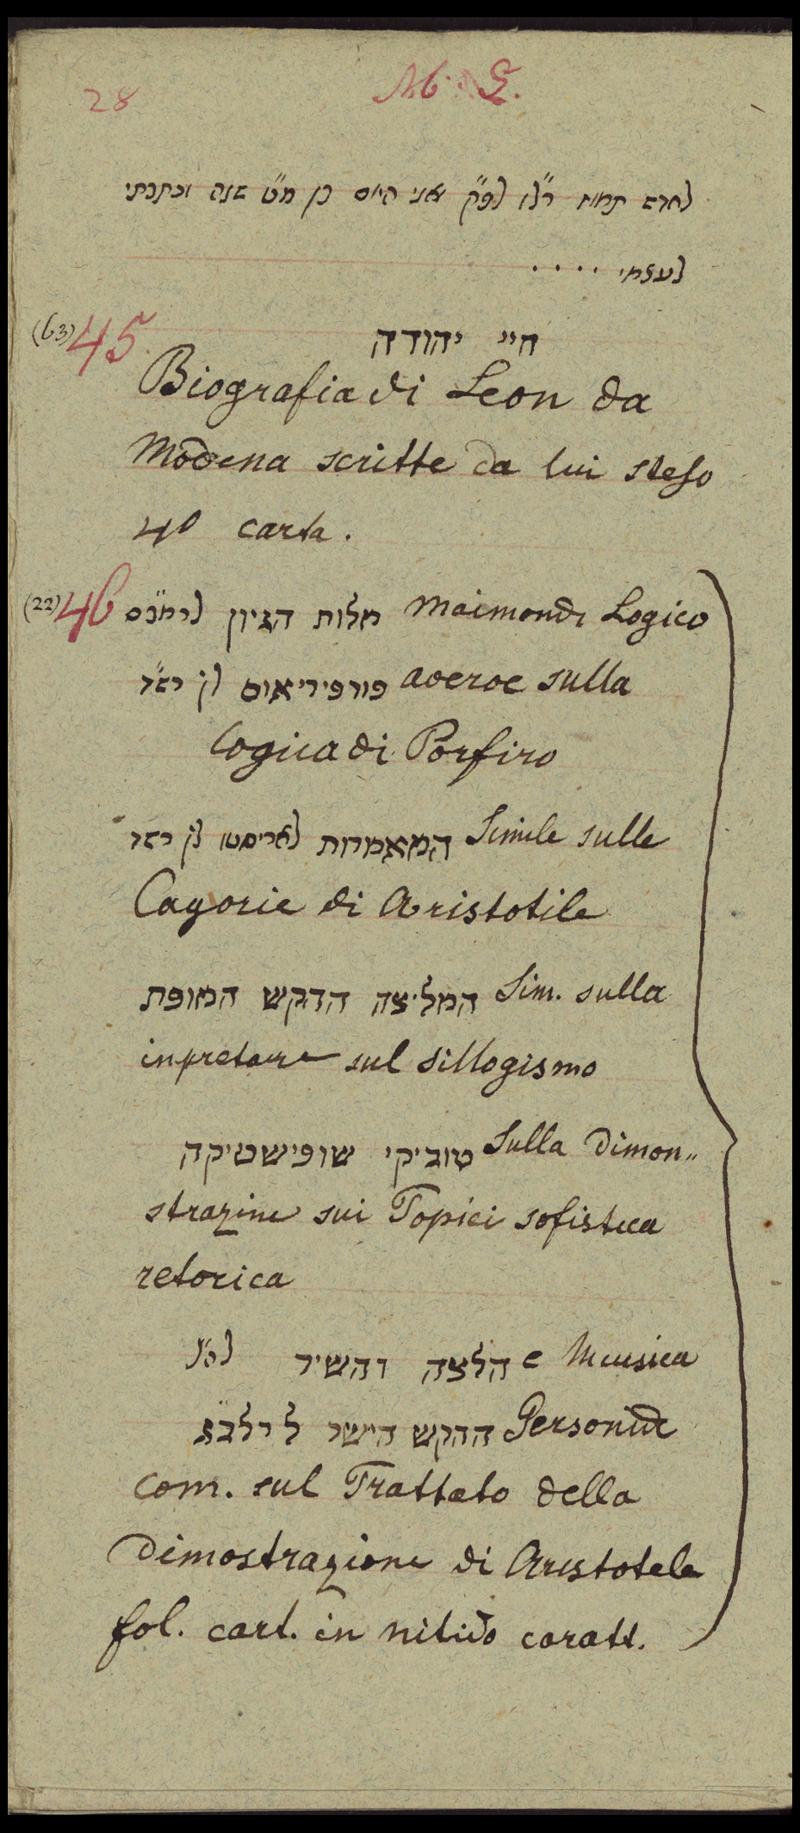 28
לחדש תמוז ר"לו לפ"ק ואני היום בן מ"ט שנה וכתבתי
לעצמי ....
(63) 45 חיי יהודה
Biografia di Leon da
Modena scritte da lui steso
40 carta.
(22) 46 מלות הגיון לרמב"ם Maimondi Logico
פורפיריאוס לן' רשד averoe sulla
Logica di Porfiro
המאמרות לאריסטו לן' רשד Simile sulle
Cagorie di Aristotile
המליצה ההקש המופת Sim. sulla
inpretare sul sillogismo
טוביקי שופישטיקה Sulla dimon„
strazine sui Topici sofistica
retorica
הלצה והשיר e Musica
ההקש הישר לרלבג Gersonide
com. sul Trattato della
Dimostrazione di Aristotele
fol. cart. in nitido caratt.